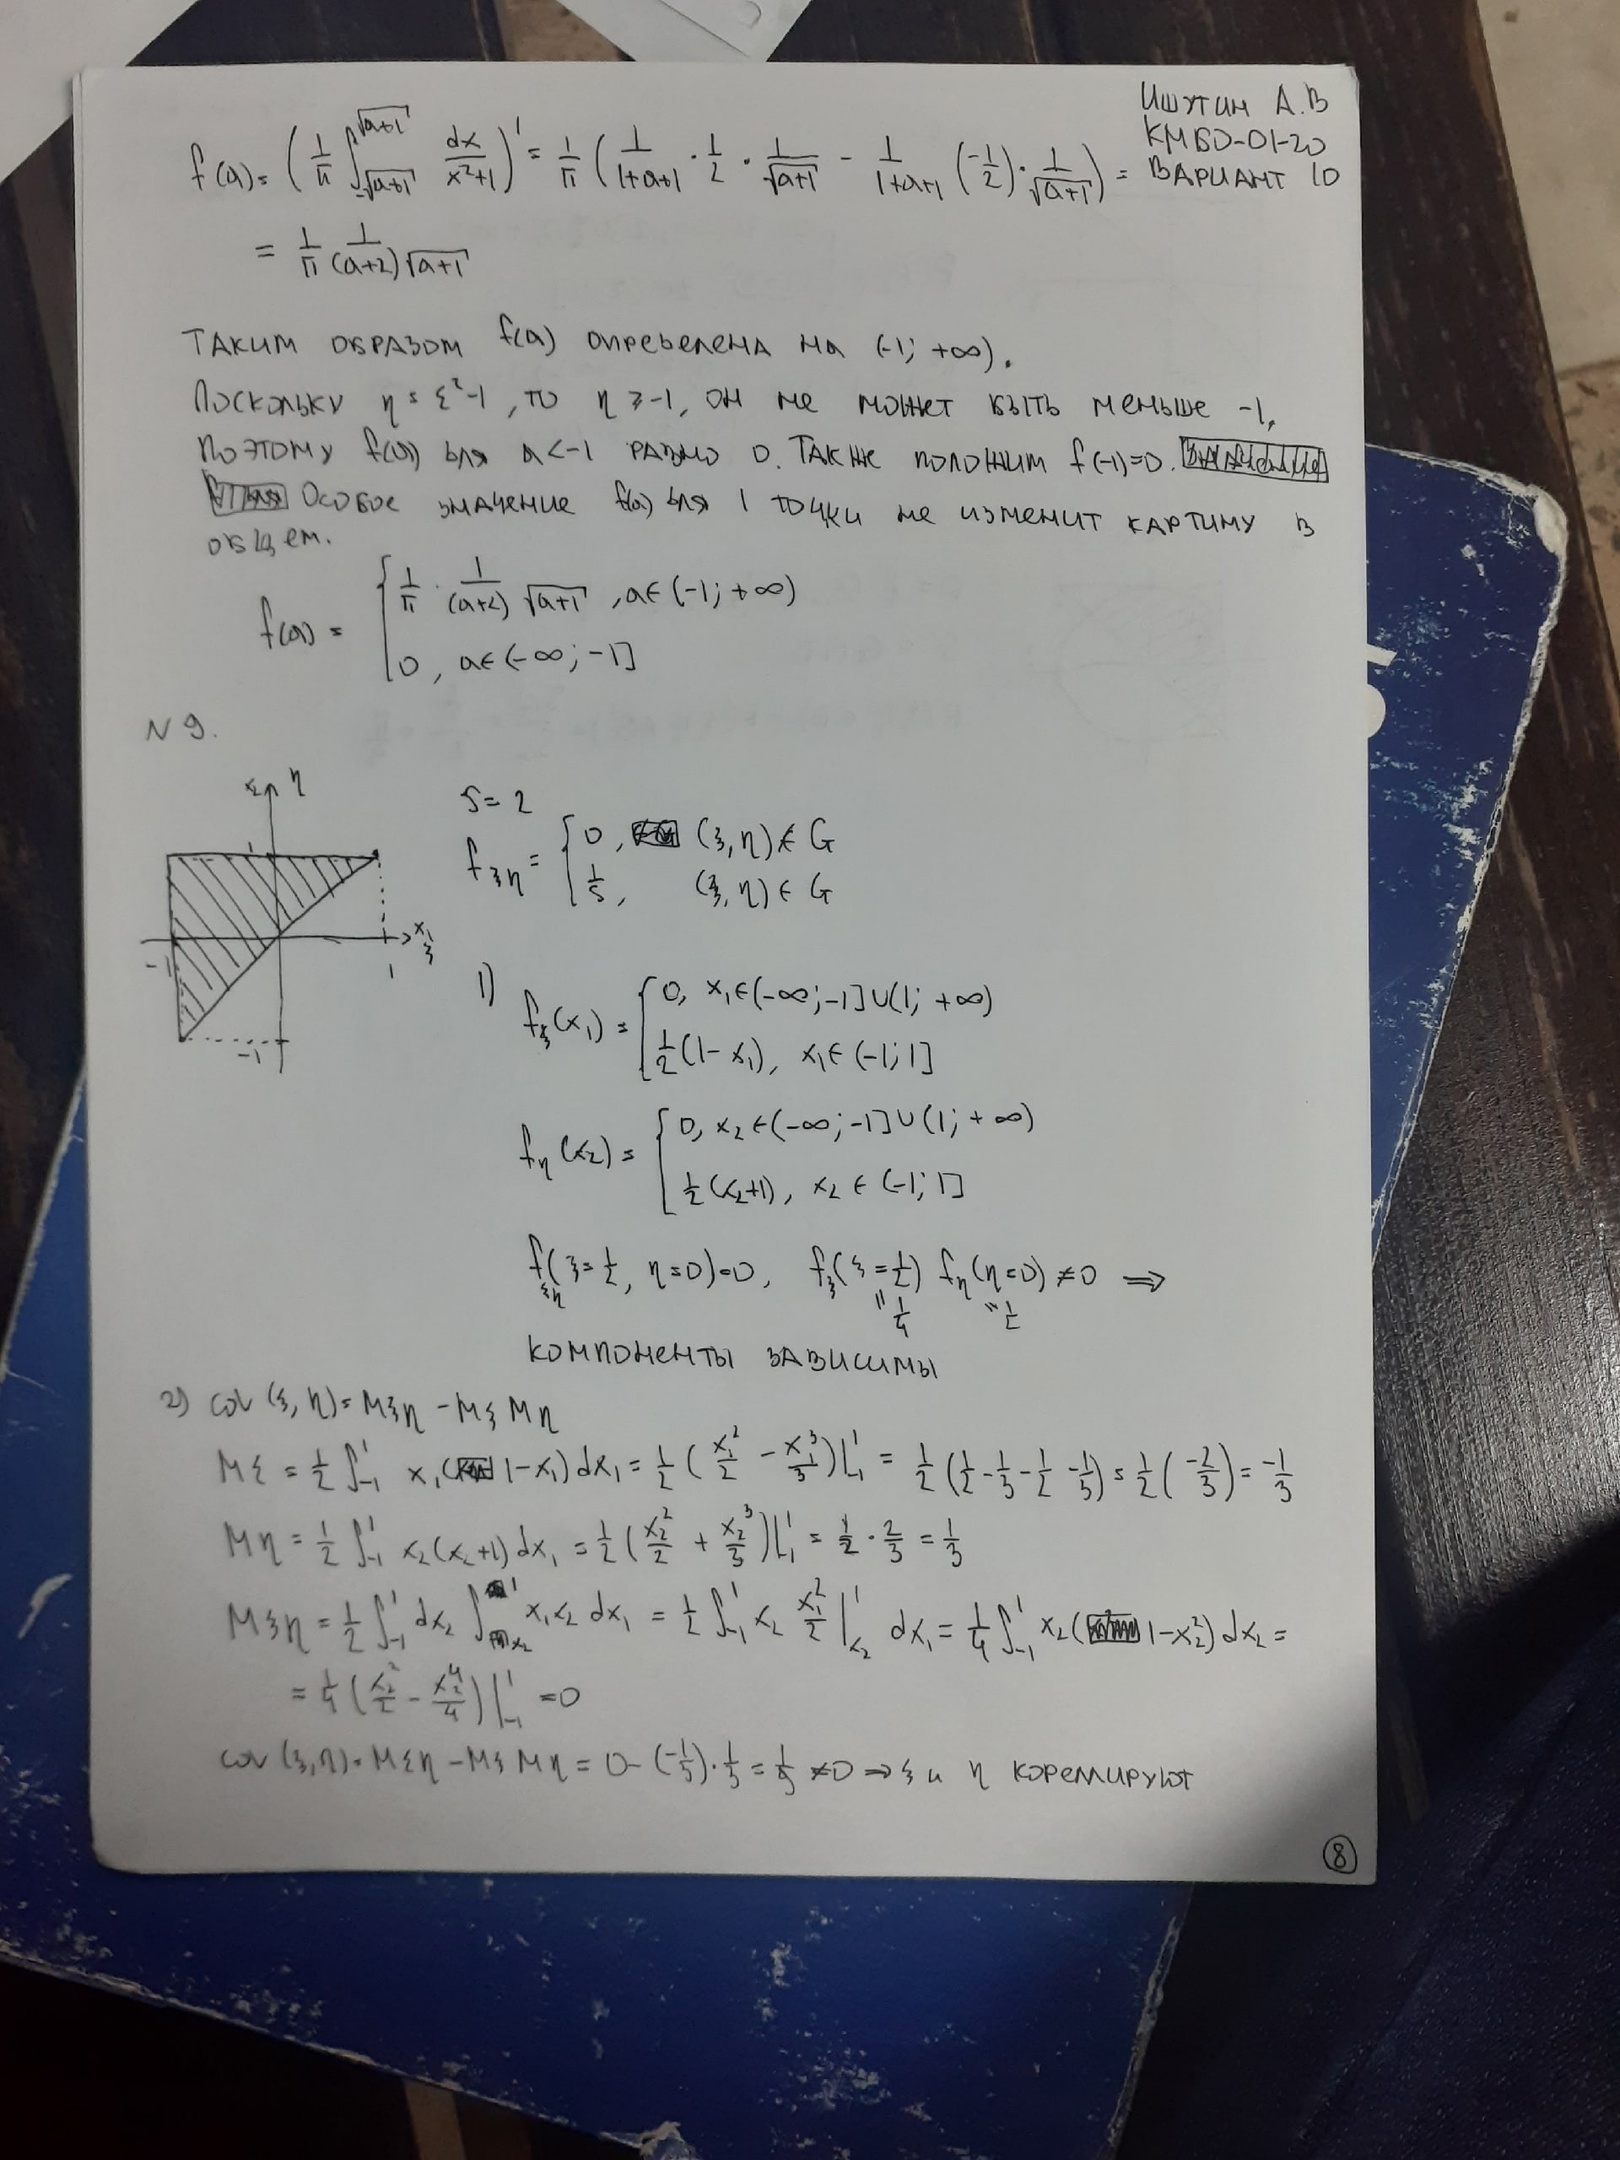 Ишутин А.В
КМБО-01-20
Вариант 10
f(a) = (1/π ∫_{-√(a+1)}^{√(a+1)} dx/(x²+1))' = 1/π (1/(1+a+1) · 1/2 · 1/√(a+1) - 1/(1+a+1) (-1/2) · 1/√(a+1)) =
= 1/π 1/((a+2)√(a+1))
Таким образом f(a) определена на (-1; +∞).
Поскольку η = ξ²-1, то η ≥ -1, он не может быть меньше -1,
поэтому f(a) для a<-1 равно 0. Также положим f(-1)=0.
Особое значение f(a) для 1 точки не изменит картину в
общем.
f(a) = { 1/π · 1/((a+2)√(a+1)), a∈(-1; +∞)
0, a∈(-∞; -1]
N 9.
x₂ η
1
-1
x₁ ξ
1
-1
S = 2
f_ξη = { 0, (ξ, η) ∉ G
1/S, (ξ, η) ∈ G
1) f_ξ(x₁) = { 0, x₁∈(-∞; -1]∪(1; +∞)
1/2(1-x₁), x₁∈(-1; 1]
f_η(x₂) = { 0, x₂∈(-∞; -1]∪(1; +∞)
1/2(x₂+1), x₂∈(-1; 1]
f_ξη(ξ=1/2, η=0)=0, f_ξ(ξ=1/2) f_η(η=0) ≠ 0 ⇒
" 1/4 " 1/2
компоненты зависимы
2) cov(ξ, η) = Mξη - Mξ Mη
Mξ = 1/2 ∫_{-1}^{1} x₁(1-x₁)dx₁ = 1/2 (x₁²/2 - x₁³/3)|_{-1}^{1} = 1/2 (1/2 - 1/3 - 1/2 - 1/3) = 1/2 (-2/3) = -1/3
Mη = 1/2 ∫_{-1}^{1} x₂(x₂+1)dx₁ = 1/2 (x₂²/2 + x₂³/3)|_{-1}^{1} = 1/2 · 2/3 = 1/3
Mξη = 1/2 ∫_{-1}^{1} dx₂ ∫_{x₂}^{1} x₁x₂ dx₁ = 1/2 ∫_{-1}^{1} x₂ x₁²/2 |_{x₂}^{1} dx₁ = 1/4 ∫_{-1}^{1} x₂(1-x₂²)dx₂ =
= 1/4 (x₂²/2 - x₂⁴/4)|_{-1}^{1} = 0
cov(ξ, η) = Mξη - Mξ Mη = 0 - (-1/3) · 1/3 = 1/9 ≠ 0 ⇒ ξ и η корелируют
8